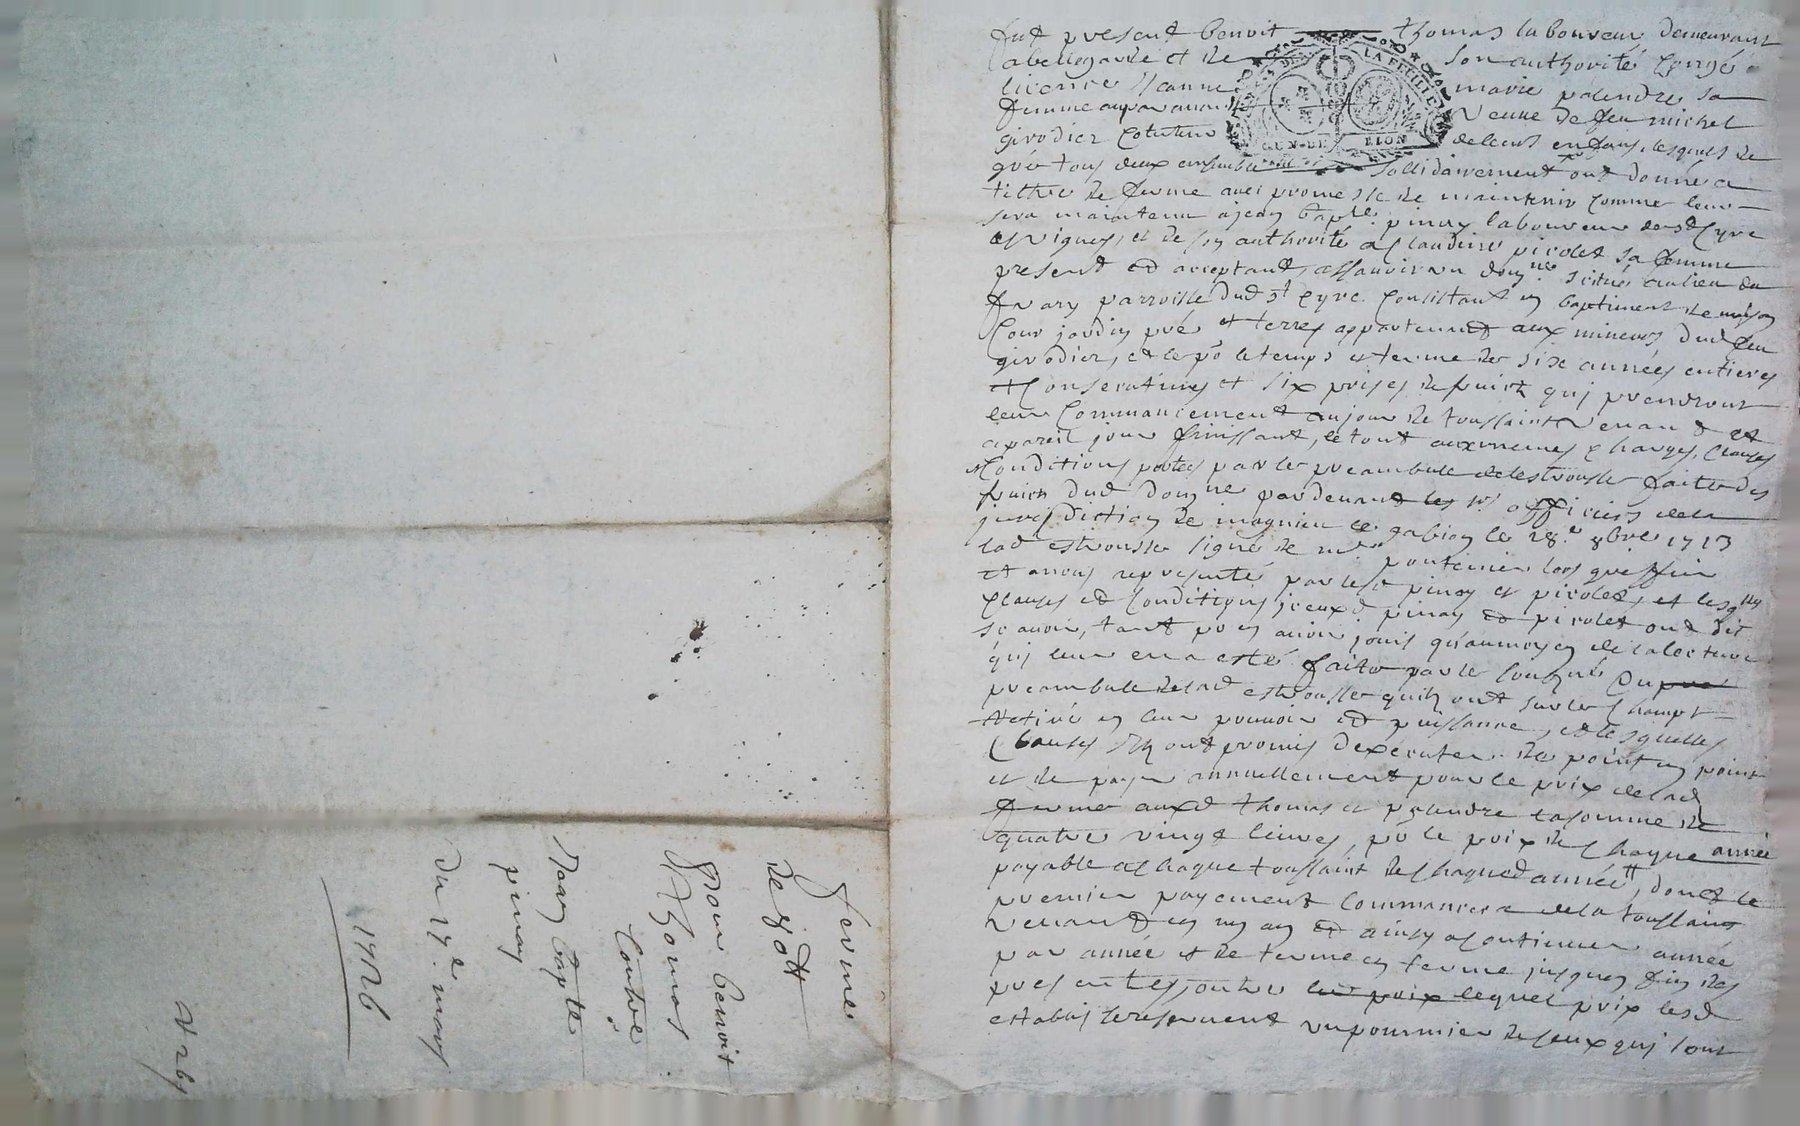 fut present benoit thomas laboureur demeurant
abellegarde et de son authorité congé
licence Jeanne marie palendre sa
femme auparavant veuve de feu michel
girodier et tutrice de leurs enfans, lesquels de
gré tous deux ensemble sollidairement ont donné a
tiltre de ferme avec promesse de maintenir comme
sera maintenu a jean bapte pinay laboureur de st Cyre
les vignes, et de son authorité a Claudine picolet sa femme
present et acceptant, assavoir un domne scitué au lieu de
parroisse dud st Cyre Consistant en baptiment de maison
Cour jardin pré et terres appartenant aux mineurs dud feu
girodier, et ce po le temps et terme de six années entieres
et Consecutives et six prises de fruict qui prendront
leur Commancement au jour de toussaint venant et
a pareil jour finissant, le tout aux mesmes charges, Clauses
et Conditions portées par le preambule de lestrousse faite des
fruicts dud domne pardevant les srs officiers de la
jurisdiction de magnieu le gabion le 28e 8bre 1713
lad estrousse signé de mr pontcinier lors greffier
et a nous representé par lesd pinay et picolet, et lesqlles
Clauses et Conditions iceux pinay et picolet ont dit
scavoir, tant po en avoir jouis quau moyen de la lecture
qui leur en a esté faite par le soubsné du
preambule de lad estrousse quils ont sur le champt
retiré en leur pouvoir et puissance, et lesquelles
Clauses ils ont promis dexecuter de point en point
et de payer annuellement pour le prix de lad
ferme auxd thomas et palendre la somme de
quatre vingt livres, po le prix de chaque année
payable a chaque toussaint de chaque année, dont le
premier payement Commancera de la toussaint
venant en un an et ainsy a continuer année
par année et de terme en terme jusques fin des
presentes, outre le prix lequel prix lesd
establis se reservent un pommier de ceux qui sont
GEN. DE LION
LA FEUILLE
ferme
de 80tt
pour benoit
thomas
Contre
Jean bapte
pinay
du 17e mars
1726